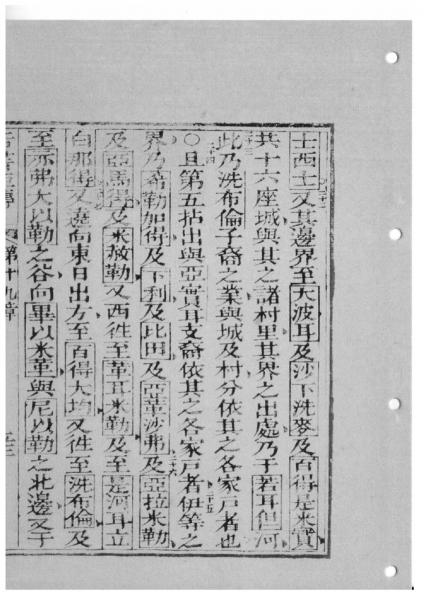 士西士又其邊界至大波耳及沙下洗麥及百得是米實
共十六座城與其之諸村里其界之出處乃于若耳但河
此乃洗布倫子裔之業與城及村分依其之各家戶者也
○且第五拈出與亞實耳支裔依其之各家戶者伍等之
界乃希勒加得及下利及比田及亞革沙弗及亞拉米勒
及亞馬得及米赦勒又西徃至革耳米勒及至是河耳立
白那得又遶向東日出方至百得大均又徃至洗布倫及
至亦弗大以勒之谷向畢以米革與尼以勒之北邊又于
第十九章